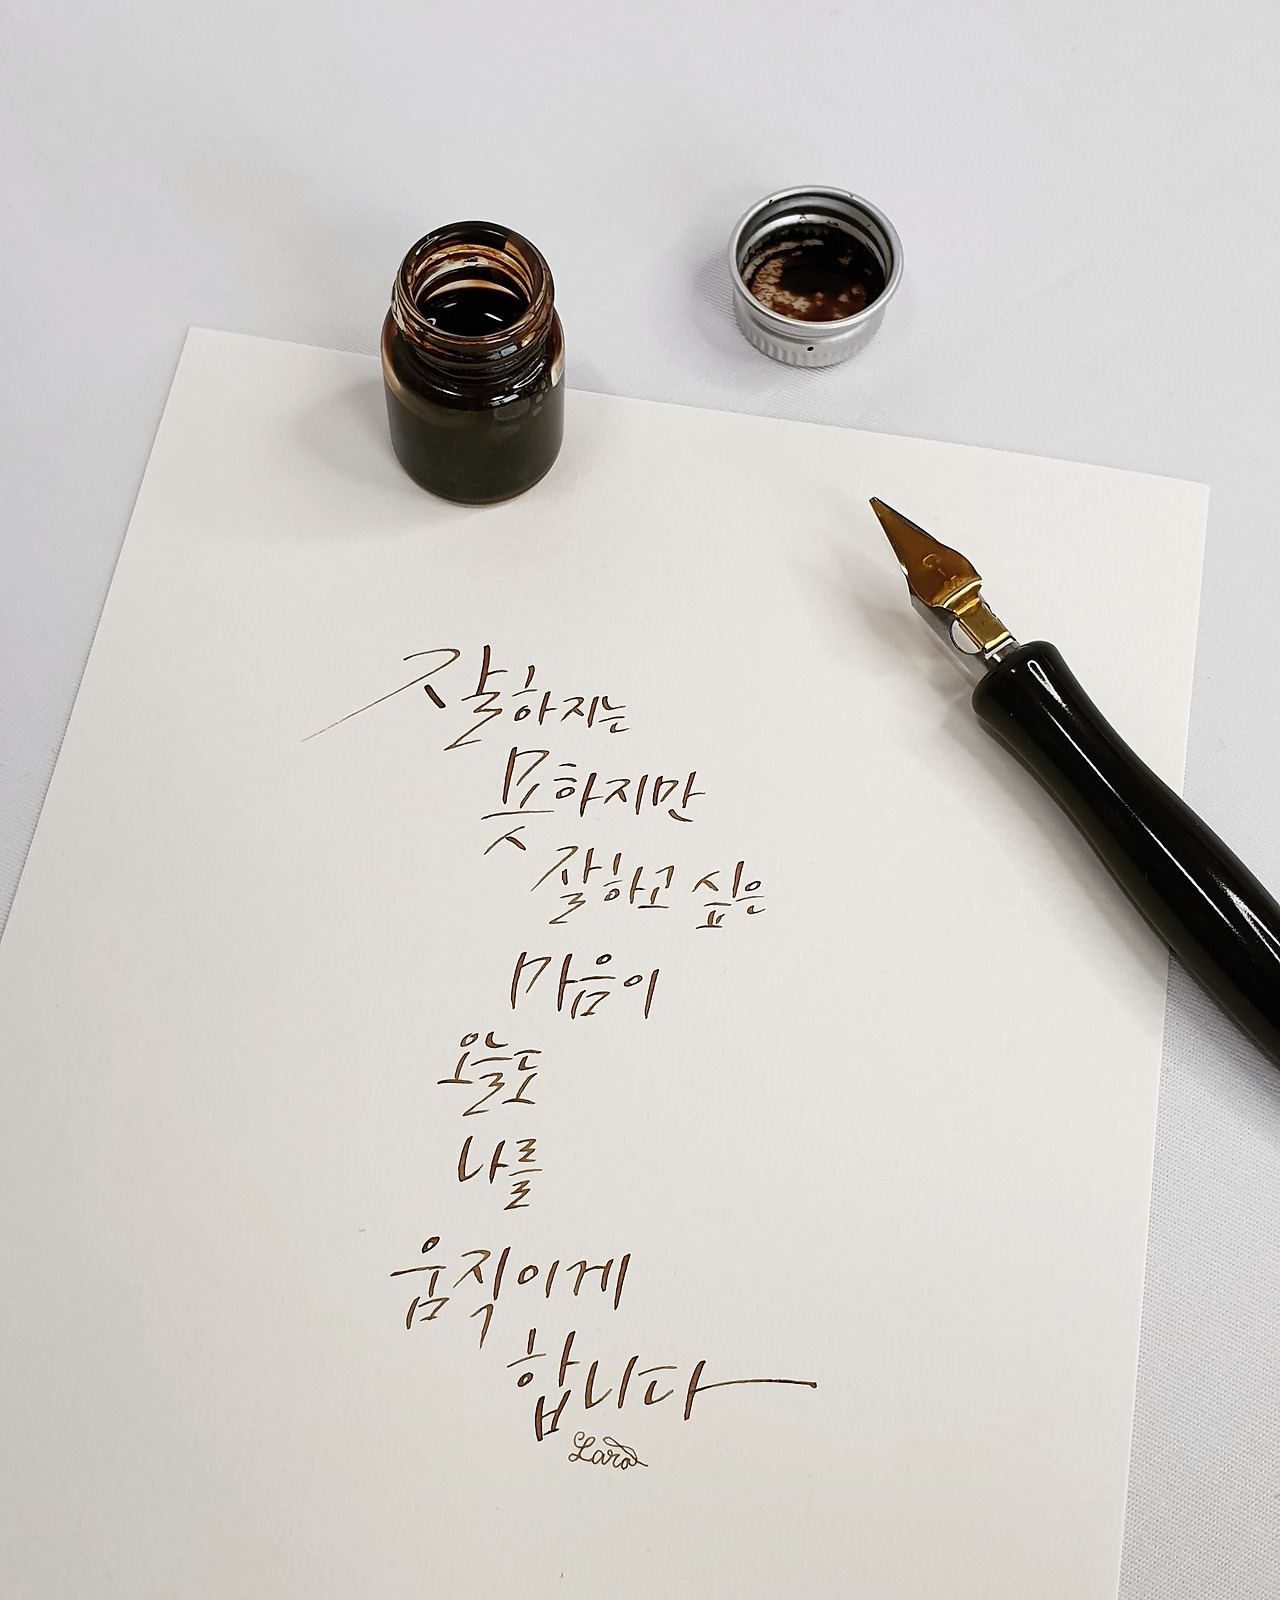 잘하지는
못하지만
잘하고 싶은
마음이
오늘도
나를
움직이게
합니다
Lara